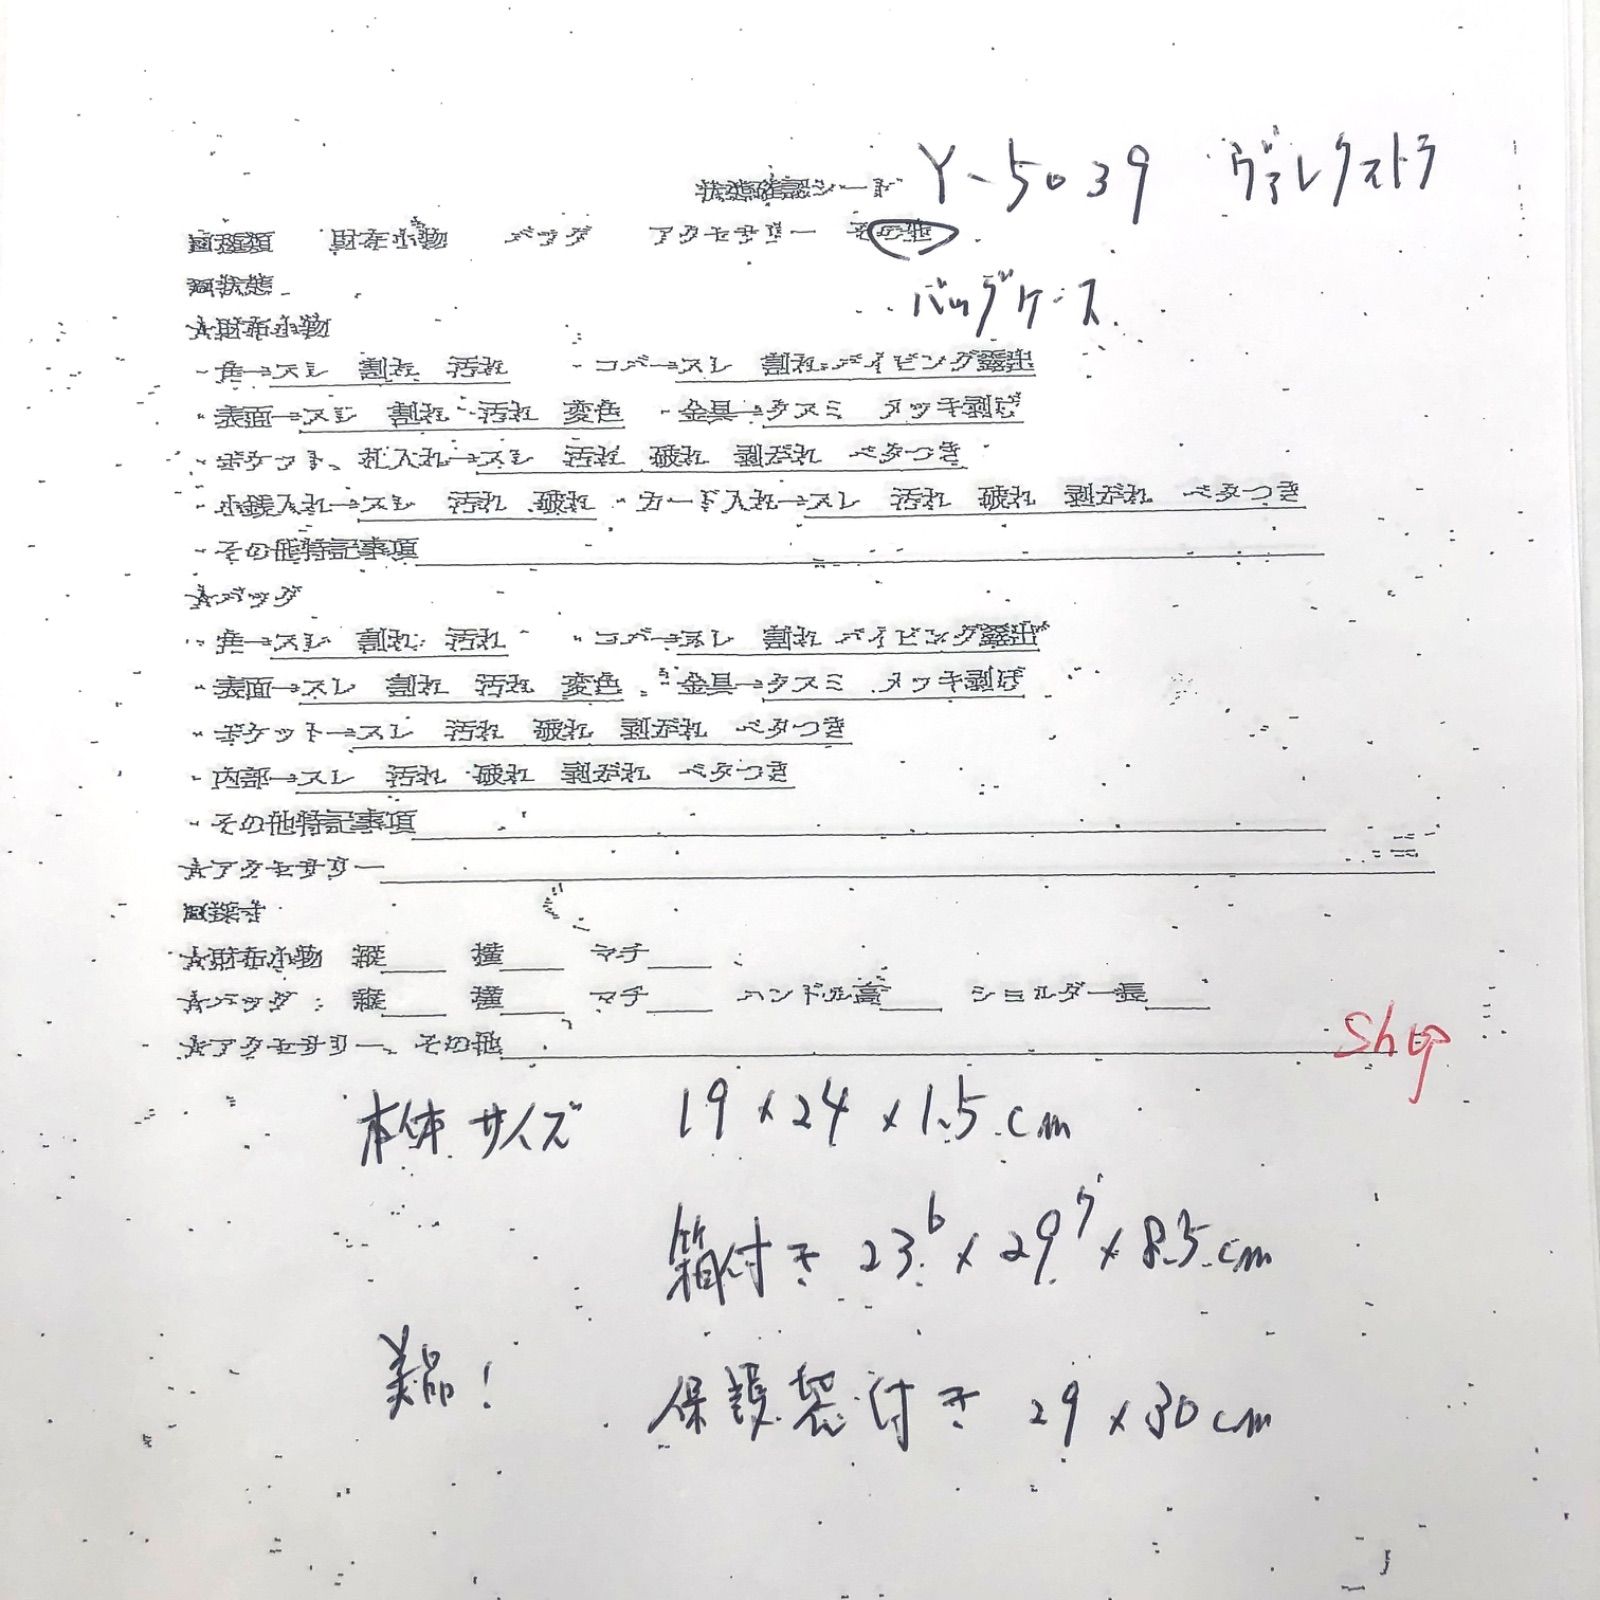 状態確認シート Y-5039 ヴァレクストラ
■種類 財布小物 バッグ アクセサリー その他
バッグケース
■状態
☆財布小物
・角→スレ 割れ 汚れ ・コバ→スレ 割れ パイピング露出
・表面→スレ 割れ 汚れ 変色 ・金具→クスミ メッキ剥げ
・ポケット、札入れ→スレ 汚れ 破れ 剥がれ ベタつき
・小銭入れ→スレ 汚れ 破れ ・カード入れ→スレ 汚れ 破れ 剥がれ ベタつき
・その他特記事項
☆バッグ
・角→スレ 割れ 汚れ ・コバ→スレ 割れ パイピング露出
・表面→スレ 割れ 汚れ 変色 ・金具→クスミ メッキ剥げ
・ポケット→スレ 汚れ 破れ 剥がれ ベタつき
・内部→スレ 汚れ 破れ 剥がれ ベタつき
・その他特記事項
☆アクセサリー
■採寸
☆財布小物 縦 横 マチ
☆バッグ 縦 横 マチ ハンドル高 ショルダー長
☆アクセサリー、その他
Shop
本体サイズ 19×24×1.5cm
箱付き 23.6×29.7×8.5cm
美品! 保護袋付き 29×30cm